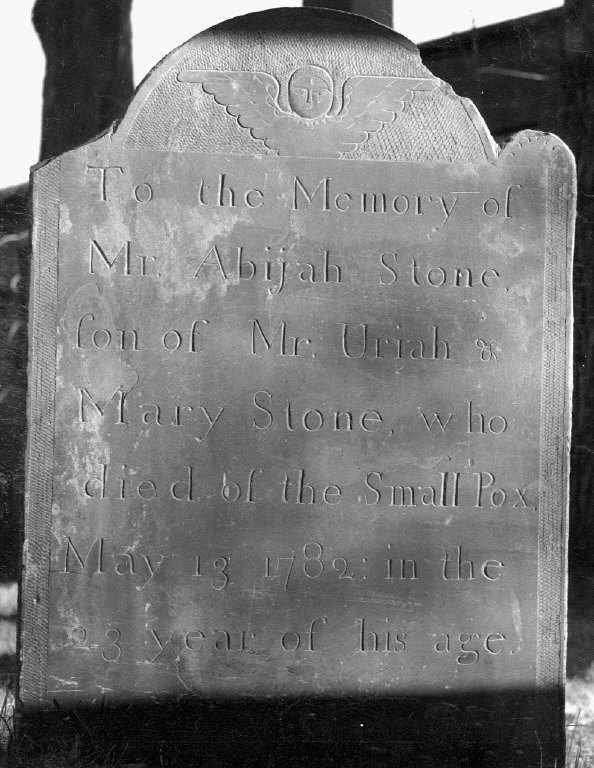 To the Memory of
Mr. Abijah Stone,
ſon of Mr. Uriah &
Mary Stone, who
died of the Small Pox,
May 13 1782: in the
23 year of his age.